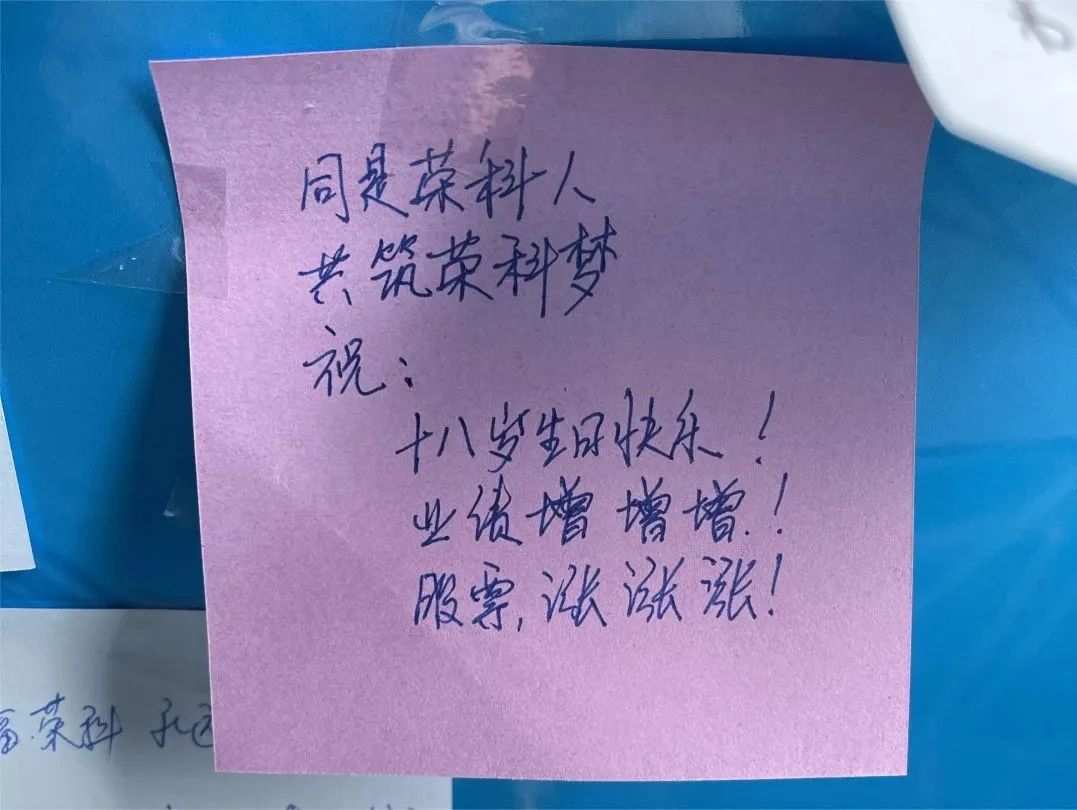 同是荣科人
共筑荣科梦
祝：
十八岁生日快乐！
业绩增增增！
股票,涨涨涨！
荣科